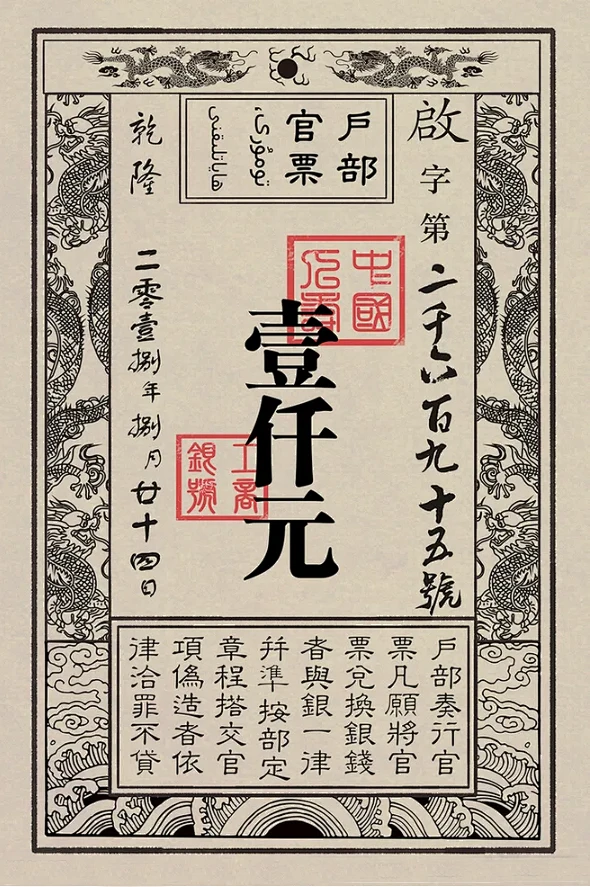 啟字第二千六百九十五號
戶部
官票
中國
壹仟元
工商
銀號
乾隆 二零壹捌年捌月廿十四日
戶部奏行官
票凡願將官
票兌換銀錢
者與銀一律
幷準按部定
章程搭交官
項偽造者依
律治罪不貸